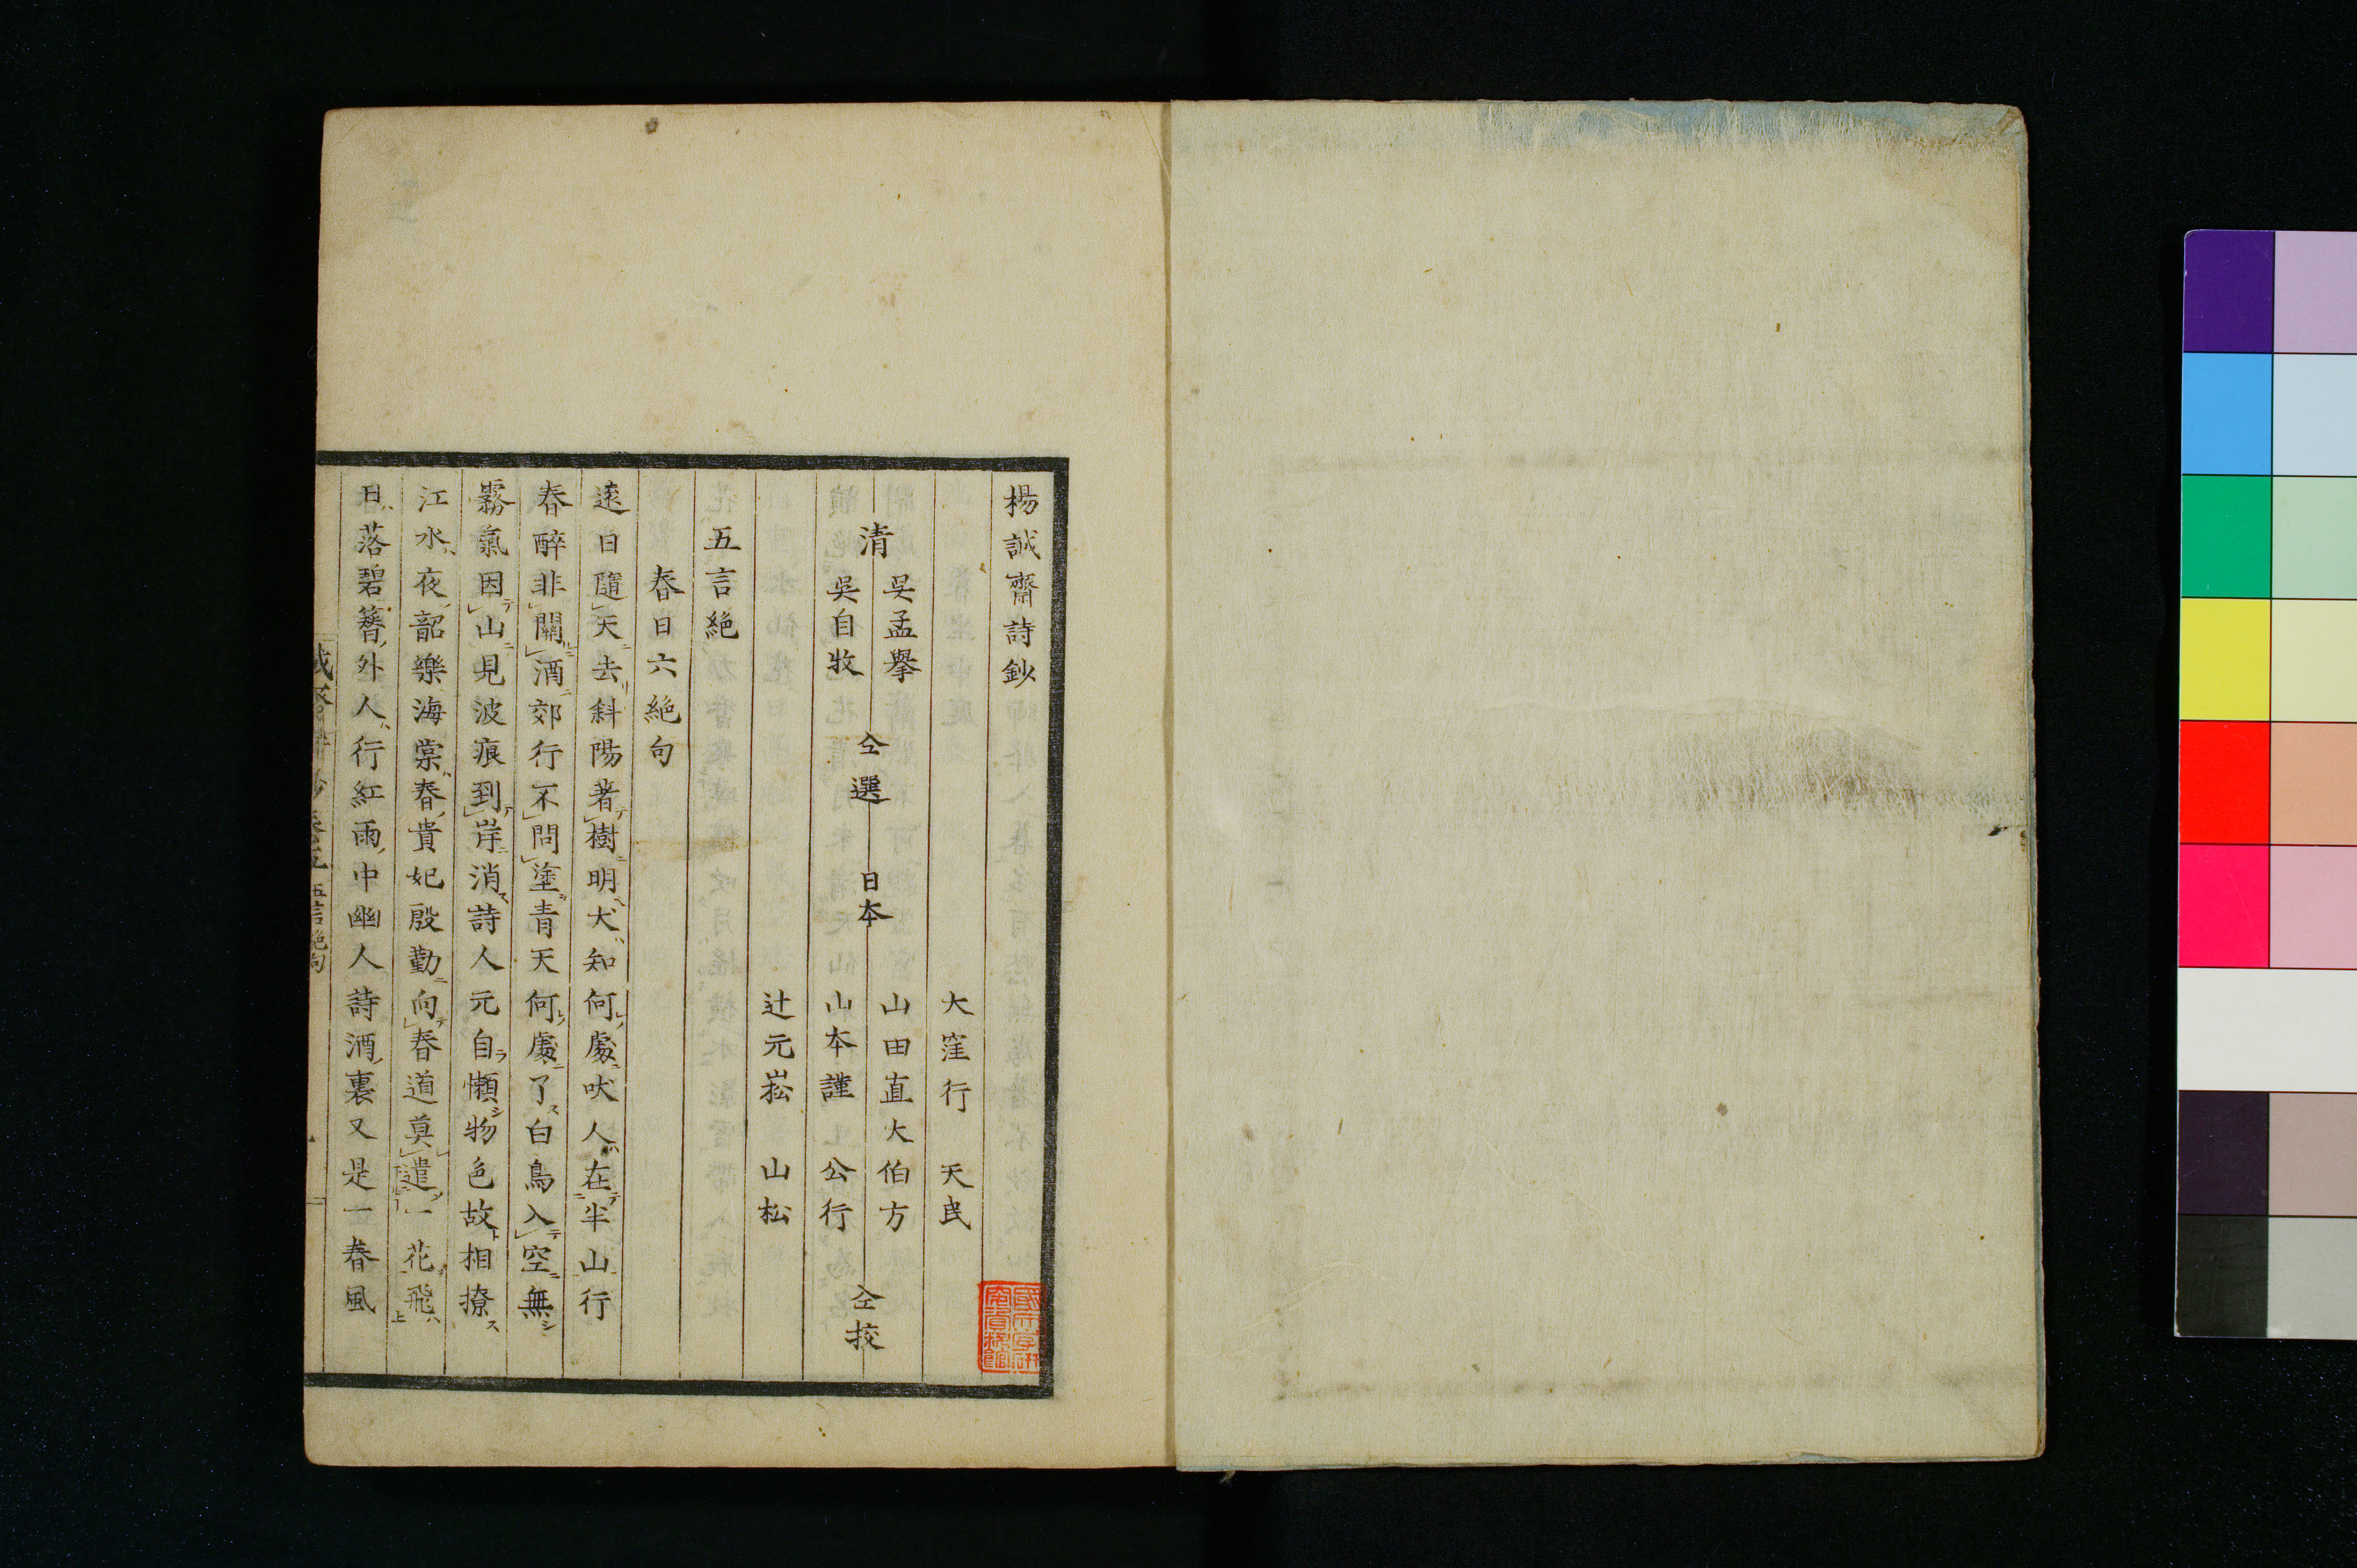 楊誠齋詩鈔
大窪行　天民
清　吳孟擧　仝選　日本　山田直大伯方　仝挍
吳自牧　山本謹　公行
辻元崧　山松
五言絶
春日六絶句
遠日隨天去斜陽著樹明犬知何處吠人在半山行
春醉非關酒郊行不問塗青天何處了白鳥入空無
霧氣因山見波痕到岸消詩人元自懶物色故相撩
江水夜韶樂海棠春貴妃殷勤向春道莫遣一花飛
日落碧簪外人行紅雨中幽人詩酒裏又是一春風